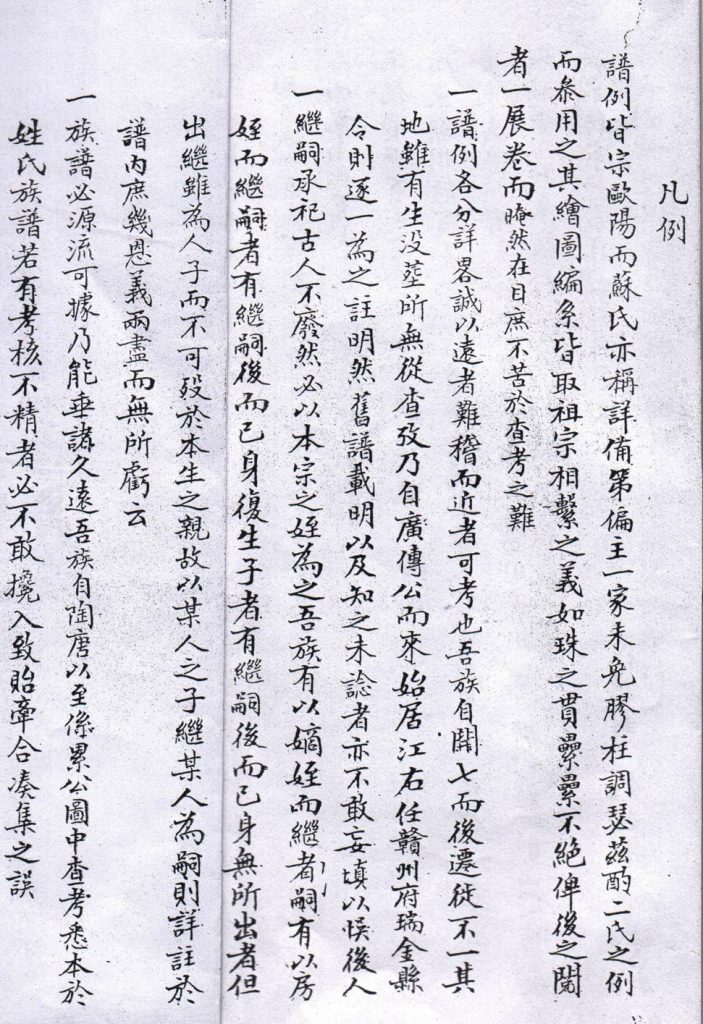 凡例
譜例皆宗歐陽而蘇氏亦稱詳備第偏主一家未免膠柱調瑟茲酌二氏之例
而叅用之其繪圖編系皆取祖宗相繫之義如珠之貫纍纍不絕俾後之閱
者一展卷而瞭然在目庶不苦於查考之難
一譜例各分詳畧誠以遠者難稽而近者可考也吾族自開七而後遷徙不一其
地雖有生没塟所無從查攷乃自廣傳公而來始居江右任贛州府瑞金縣
令則逐一為之註明然舊譜載明以及知之未諗者亦不敢妄填以悞後人
一繼嗣承祀古人不廢然必以本宗之姪為之吾族有以嫡姪而繼者嗣有以房
姪而繼嗣者有繼嗣後而己身復生子者有繼嗣後而己身無所出者但
出繼雖為人子而不可歿於本生之親故以某人之子繼某人為嗣則詳註於
譜内庶幾恩義兩盡而無所虧云
一族譜必源流可據乃能垂諸久遠吾族自陶唐以至係累公圖中查考悉本於
姓氏族譜若有考核不精者必不敢攙入致貽牽合凑集之誤